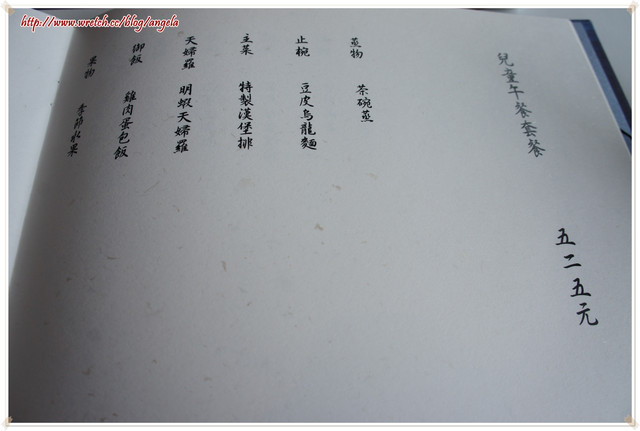 http://www.wretch.cc/blog/angela
兒童午餐套餐
五二五元
蒸物 茶碗蒸
止椀 豆皮烏龍麵
主菜 特製漢堡排
天婦羅 明蝦天婦羅
御飯 雞肉蛋包飯
菓物 季節水果